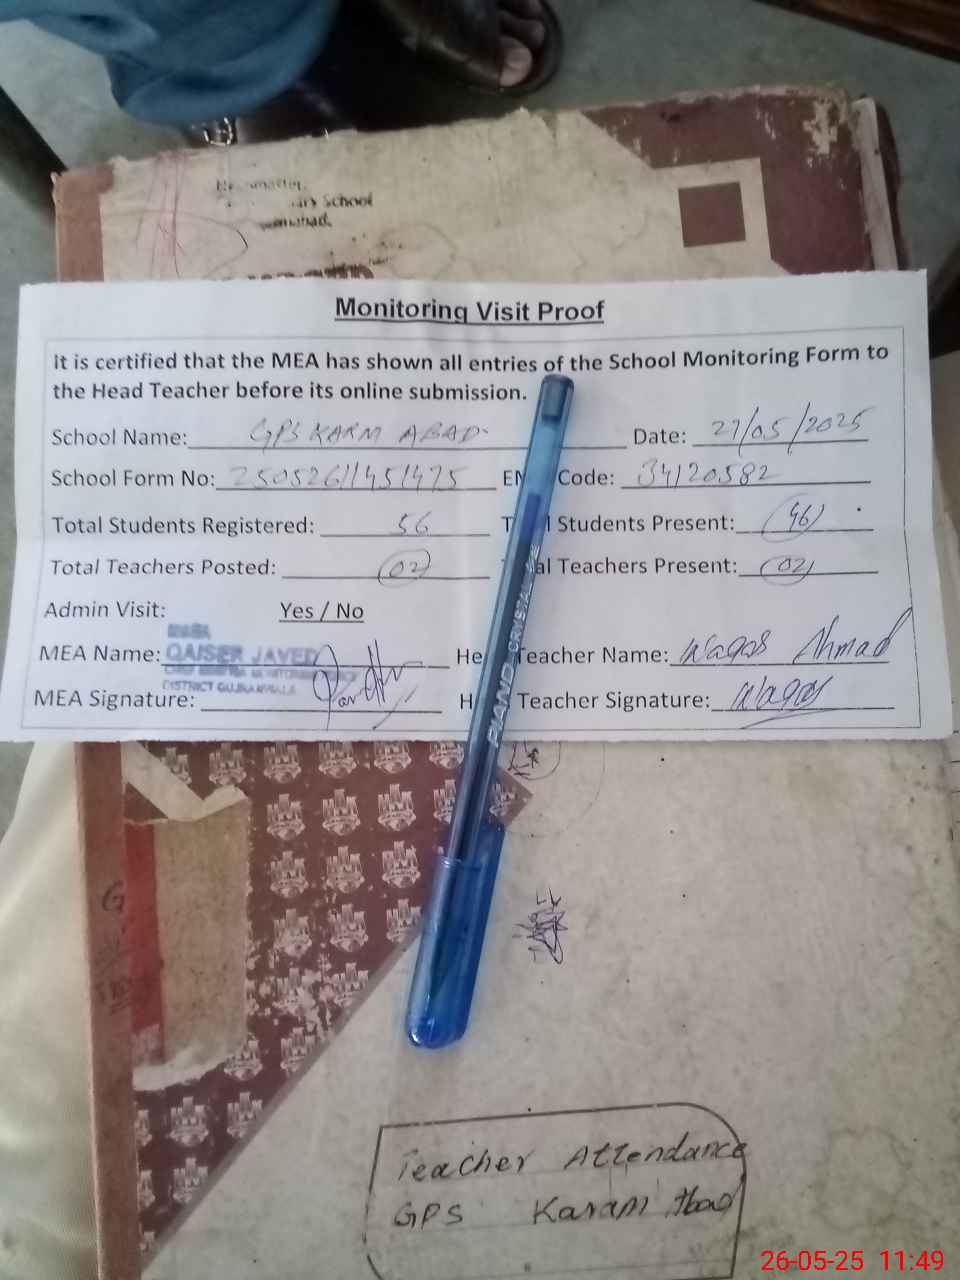 School
Monitoring Visit Proof
It is certified that the MEA has shown all entries of the School Monitoring Form to
the Head Teacher before its online submission.
School Name: GPS KARM ABAD Date: 27/05/2025
School Form No: 25052611451475 Code: 34120582
Total Students Registered: 56 Students Present: 46
Total Teachers Posted: 02 Teachers Present: 02
Admin Visit: Yes / No
MEA Name: QAISER JAVED Teacher Name: Waqas Ahmad
DISTRICT GUJRANWALA
MEA Signature: Teacher Signature: Waqas
PIANO CRYSTAL
G
Teacher Attendance
GPS Karam Abad
26-05-25 11:49